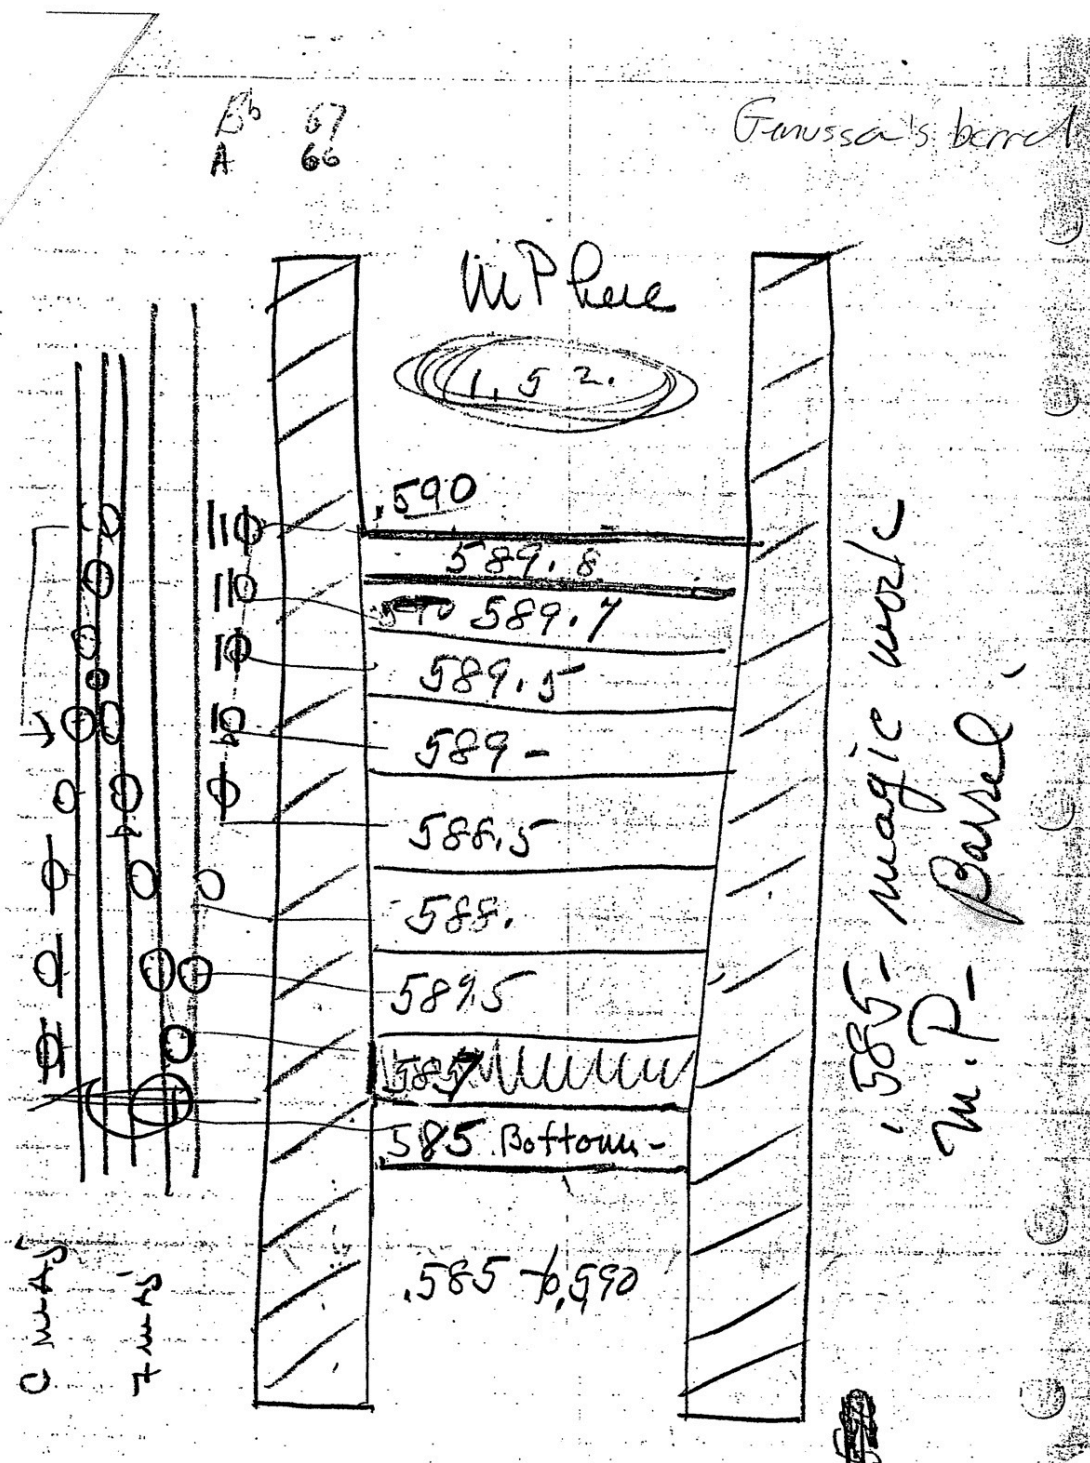 Bb 67
A 66
Genussa's barrel
M P here
1.52.
.590
589.8
589.7
589.5
589-
588.5
588.
589.5
.587
.585 Bottom-
.585 to .590
.585- magic work
M.P- Barrel
C MAJ
7 MAJ